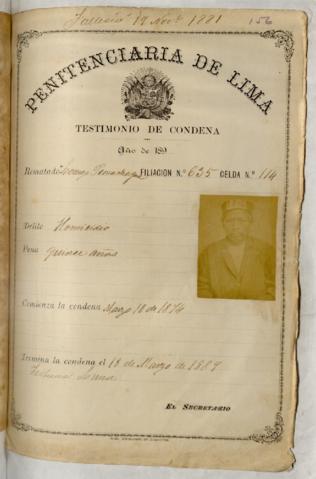 Falleció 12 Nov. 1881 156
PENITENCIARIA DE LIMA
TESTIMONIO DE CONDENA
Año de 189
Rematado FILIACION N.º 625 CELDA N.º 114
Delito Homicidio
Pena quince años
Comienza la condena Marzo 18 de 1874
Termina la condena el 18 de Marzo de 1889
EL SECRETARIO